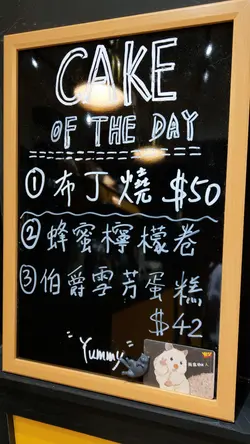 CAKE
OF THE DAY
① 布丁燒 $50
② 蜂蜜檸檬卷
③ 伯爵雪芳蛋糕
$42
"Yummy"